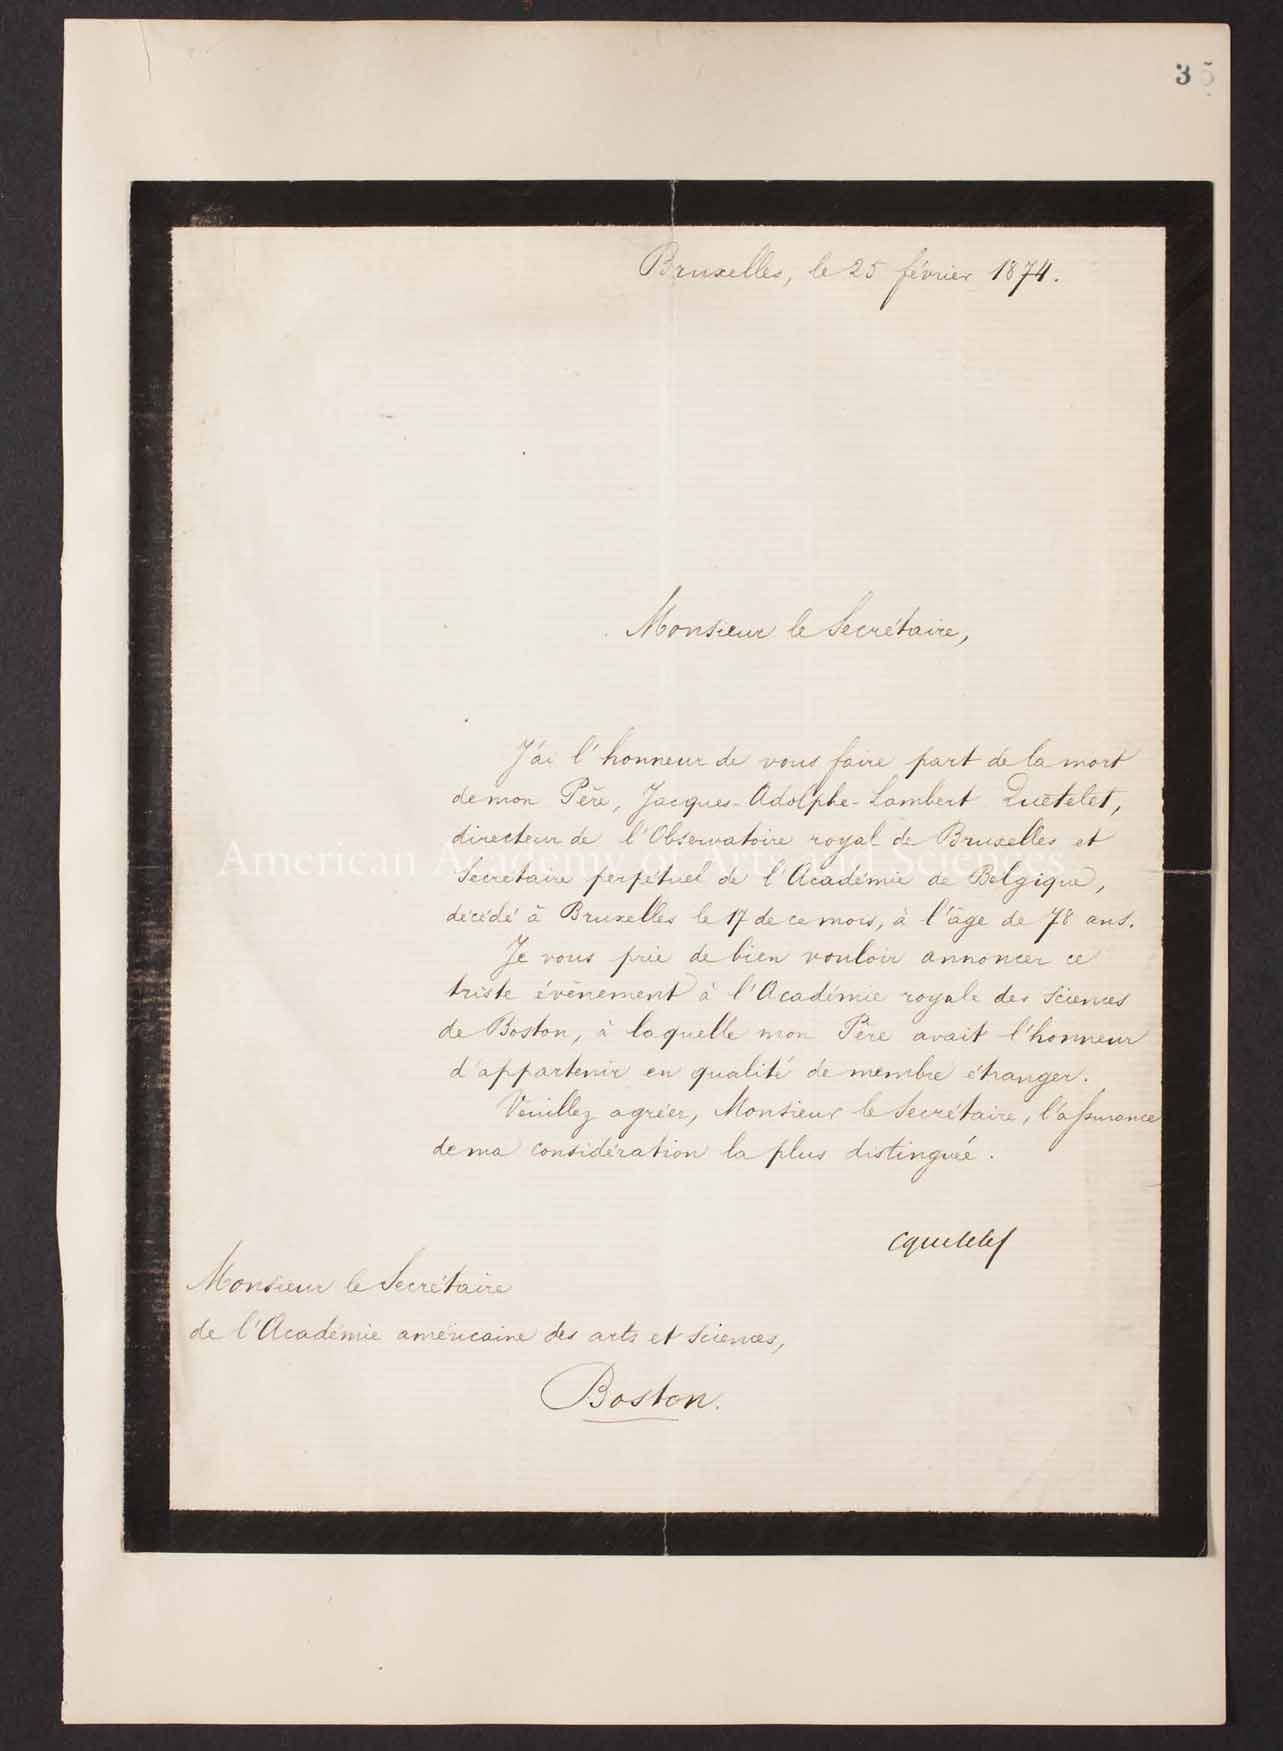 35
Bruxelles, le 25 février 1874.
Monsieur le Secrétaire,
J'ai l'honneur de vous faire part de la mort
de mon Père, Jacques-Adolphe-Lambert Quetelet,
directeur de l'Observatoire royal de Bruxelles et
American Academy of Arts and Sciences
Secrétaire perpétuel de l'Académie de Belgique,
décédé à Bruxelles le 17 de ce mois, à l'âge de 78 ans.
Je vous prie de bien vouloir annoncer ce
triste évènement à l'Académie royale des Sciences
de Boston, à laquelle mon Père avait l'honneur
d'appartenir en qualité de membre étranger.
Veuillez agréer, Monsieur le Secrétaire, l'assurance
de ma considération la plus distinguée.
Equetelet
Monsieur le Secrétaire
de l'Académie américaine des arts et sciences,
Boston.